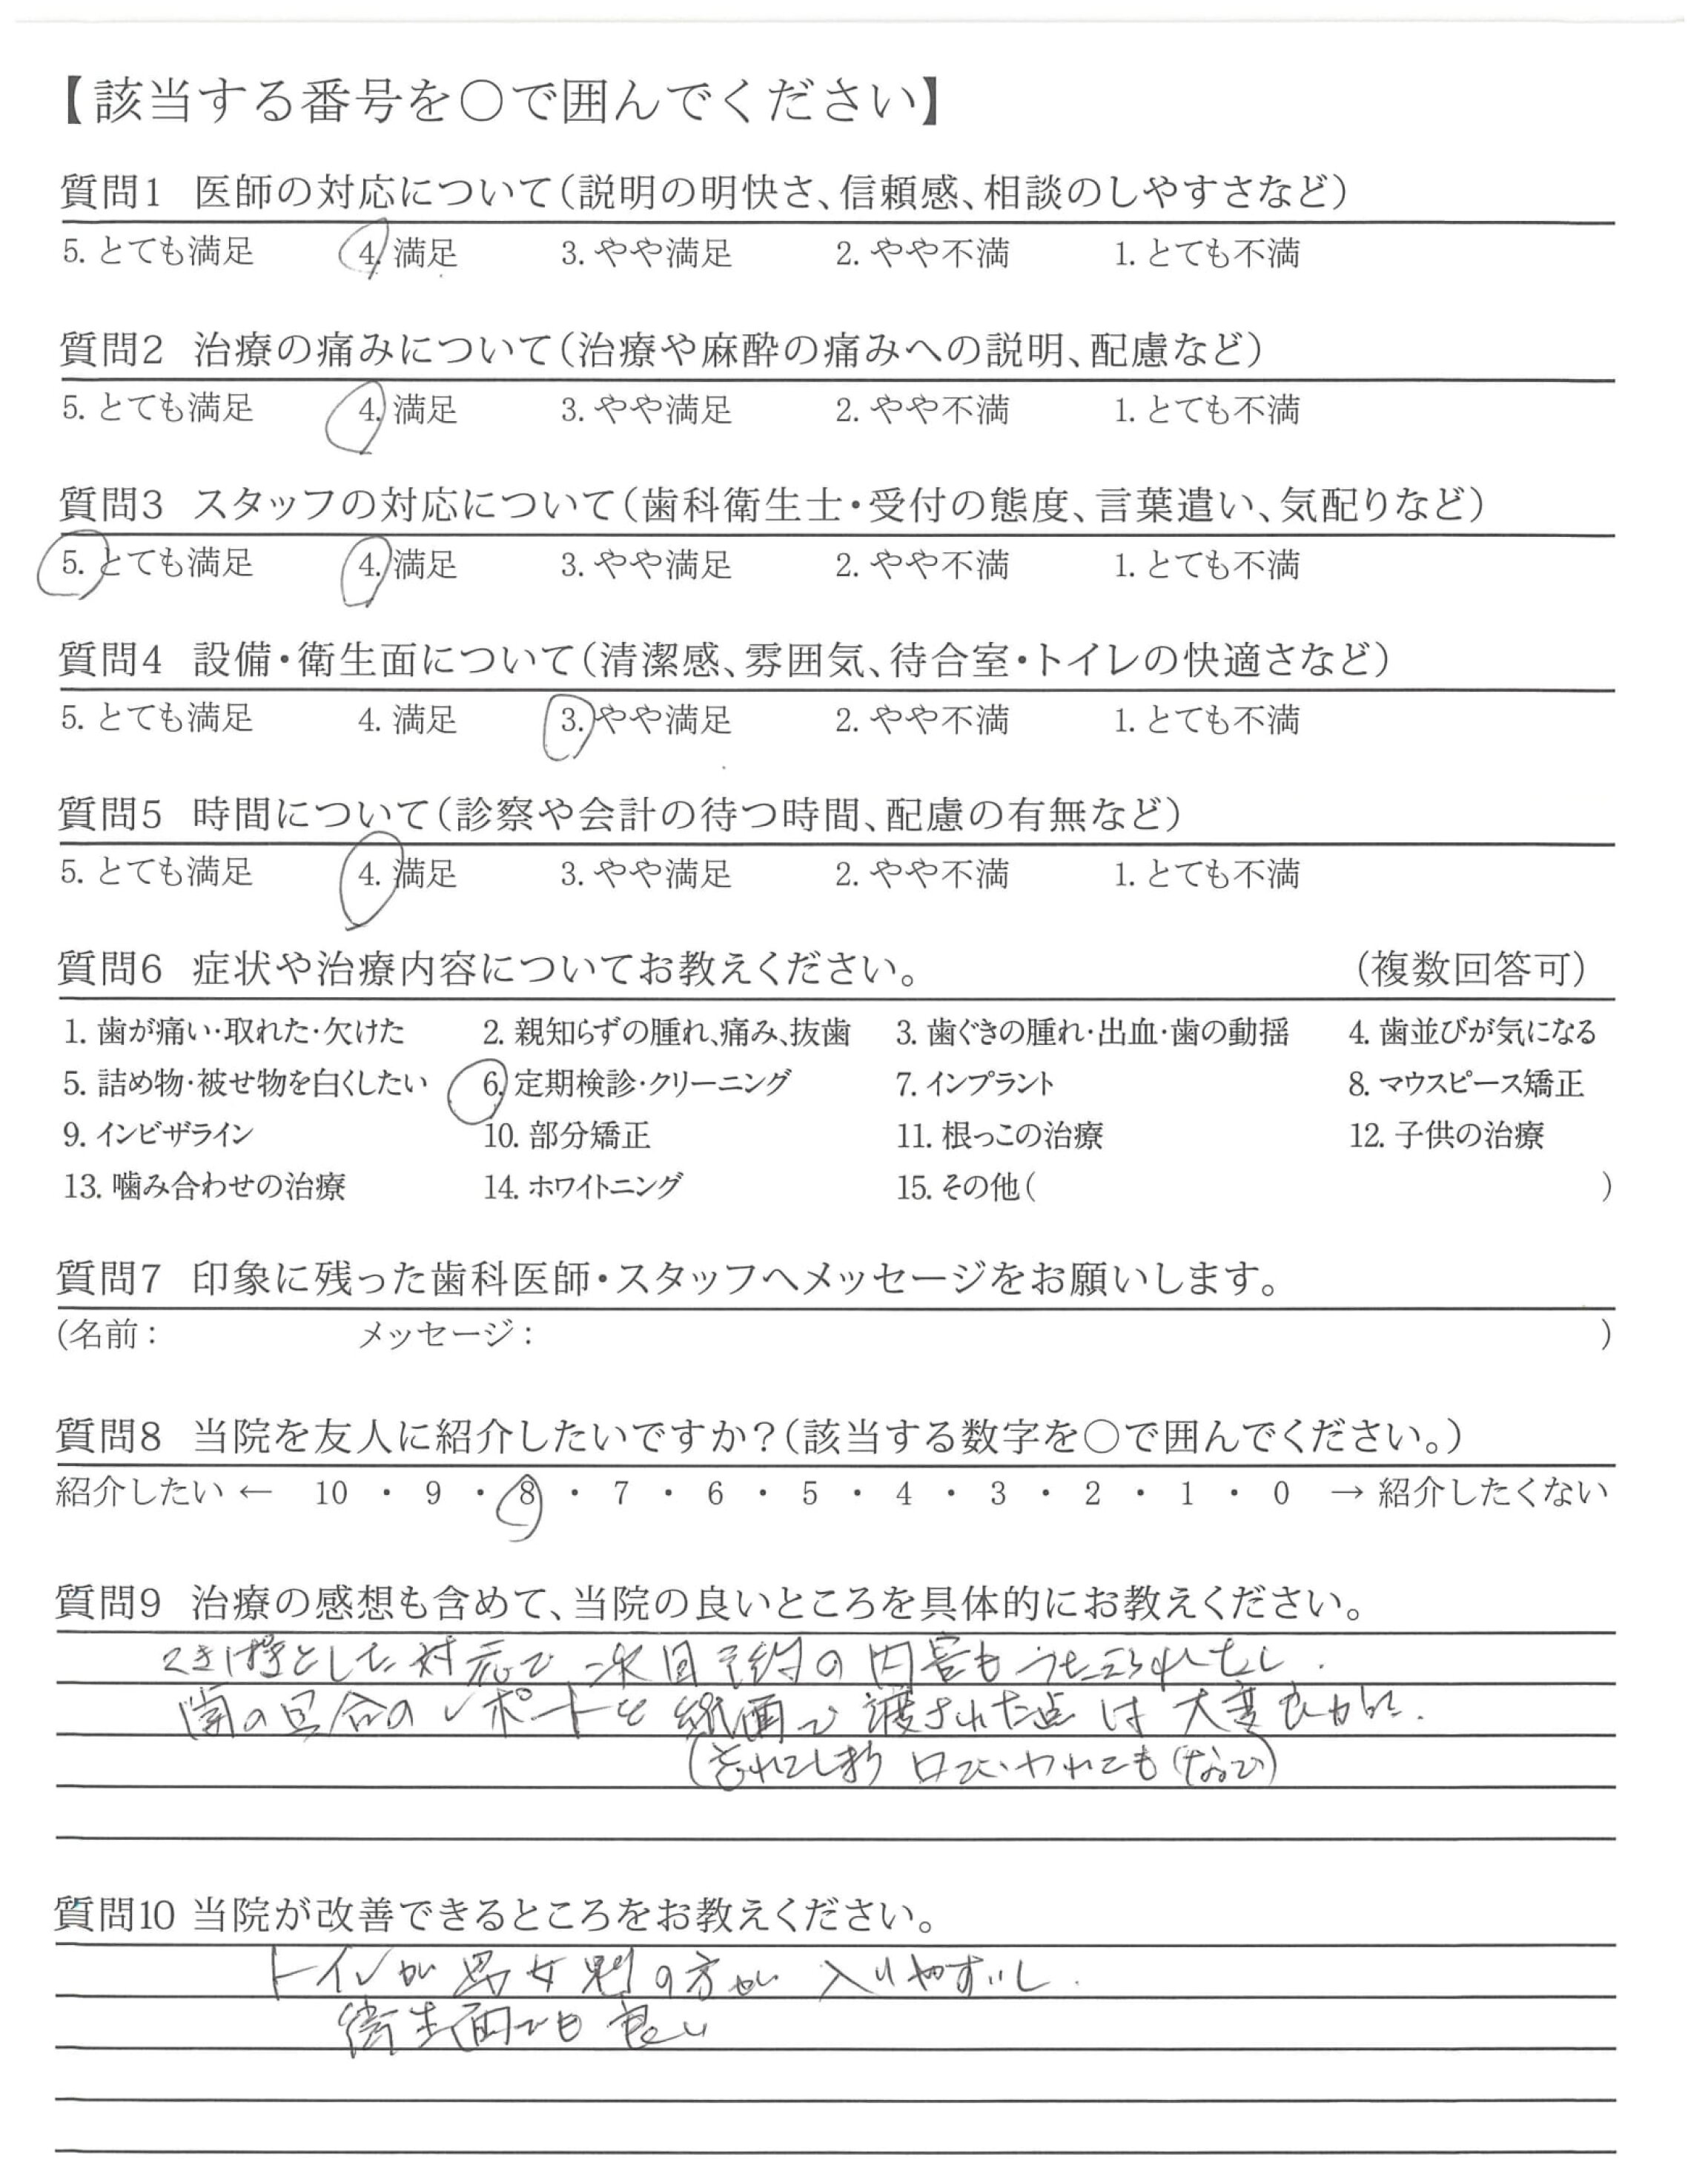 【該当する番号を○で囲んでください】
質問1 医師の対応について（説明の明快さ、信頼感、相談のしやすさなど）
5. とても満足 4. 満足 3. やや満足 2. やや不満 1. とても不満
質問2 治療の痛みについて（治療や麻酔の痛みへの説明、配慮など）
5. とても満足 4. 満足 3. やや満足 2. やや不満 1. とても不満
質問3 スタッフの対応について（歯科衛生士・受付の態度、言葉遣い、気配りなど）
5. とても満足 4. 満足 3. やや満足 2. やや不満 1. とても不満
質問4 設備・衛生面について（清潔感、雰囲気、待合室・トイレの快適さなど）
5. とても満足 4. 満足 3. やや満足 2. やや不満 1. とても不満
質問5 時間について（診察や会計の待つ時間、配慮の有無など）
5. とても満足 4. 満足 3. やや満足 2. やや不満 1. とても不満
質問6 症状や治療内容についてお教えください。 （複数回答可）
1. 歯が痛い・取れた・欠けた 2. 親知らずの腫れ、痛み、抜歯 3. 歯ぐきの腫れ・出血・歯の動揺 4. 歯並びが気になる
5. 詰め物・被せ物を白くしたい 6. 定期検診・クリーニング 7. インプラント 8. マウスピース矯正
9. インビザライン 10. 部分矯正 11. 根っこの治療 12. 子供の治療
13. 噛み合わせの治療 14. ホワイトニング 15. その他（ ）
質問7 印象に残った歯科医師・スタッフへメッセージをお願いします。
（名前： メッセージ： ）
質問8 当院を友人に紹介したいですか？（該当する数字を○で囲んでください。）
紹介したい ← 10 ・ 9 ・ 8 ・ 7 ・ 6 ・ 5 ・ 4 ・ 3 ・ 2 ・ 1 ・ 0 → 紹介したくない
質問9 治療の感想も含めて、当院の良いところを具体的にお教えください。
とした対応で 次回予約の内容も
の具合のレポートを紙面で渡された点は大変良かった.
(忘れてしまう 口でいわれても
質問10 当院が改善できるところをお教えください。
トイレが男女別の方が入りやすいし.
衛生面でも良い